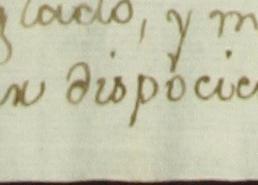 glado, y m
n dispocic